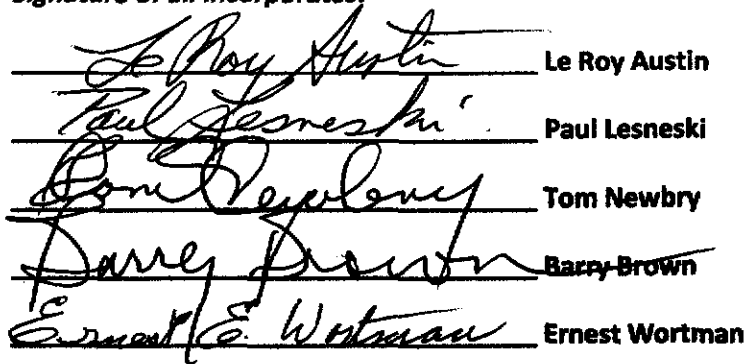 Signature of all Incorporators:
Le Roy Austin Le Roy Austin
Paul Lesneski Paul Lesneski
Tom Newbry Tom Newbry
Barry Brown Barry Brown
Ernest E. Wortman Ernest Wortman